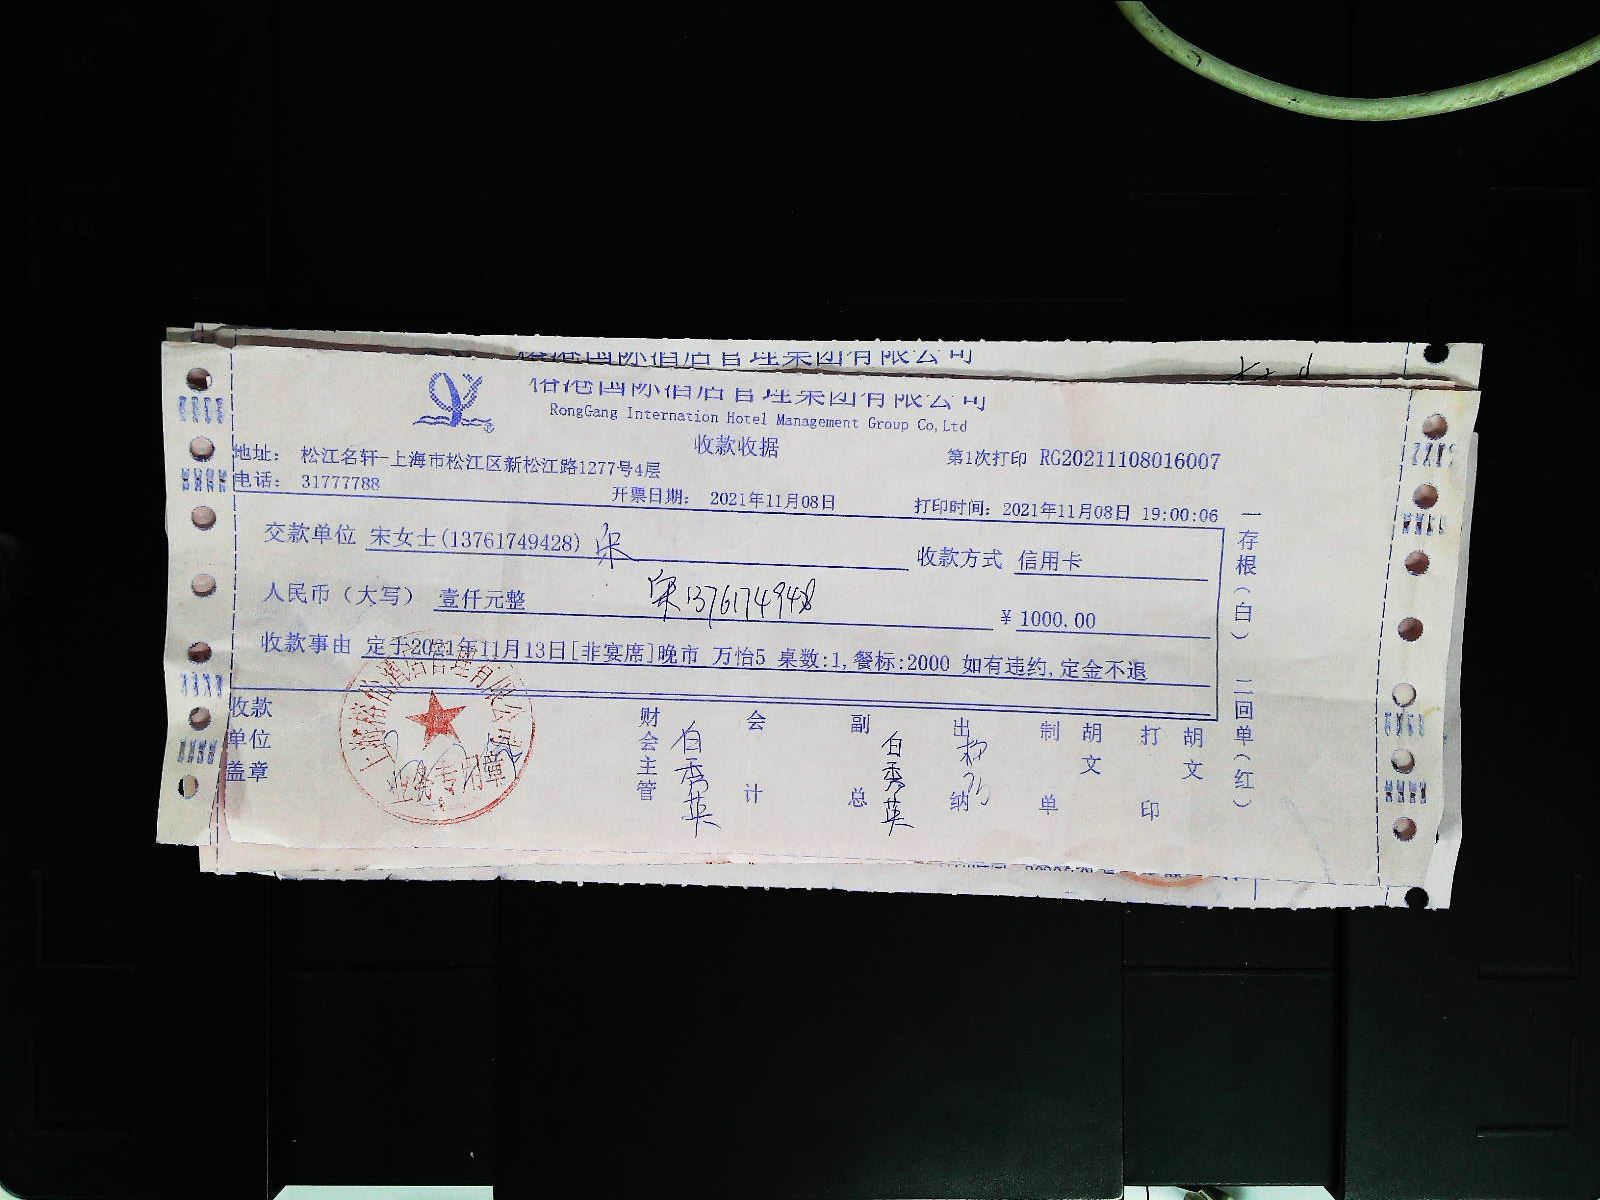 国际酒店管理集团有限公司
裕港国际酒店管理集团有限公司
RongGang Internation Hotel Management Group Co,Ltd
收款收据
地址： 松江名轩-上海市松江区新松江路1277号4层
第1次打印 RG20211108016007
电话： 31777788
开票日期： 2021年11月08日
打印时间：2021年11月08日 19:00:06
交款单位 宋女士(13761749428) 宋
收款方式 信用卡
人民币（大写） 壹仟元整
宋
￥ 1000.00
收款事由 定于2021年11月13日[非宴席]晚市 万怡5 桌数:1,餐标:2000 如有违约,定金不退
收款单位盖章
业务专用章
财会主管 白秀英
会计
副总 白秀英
出纳
制单 胡文
打印 胡文
一存根（白） 二回单（红）